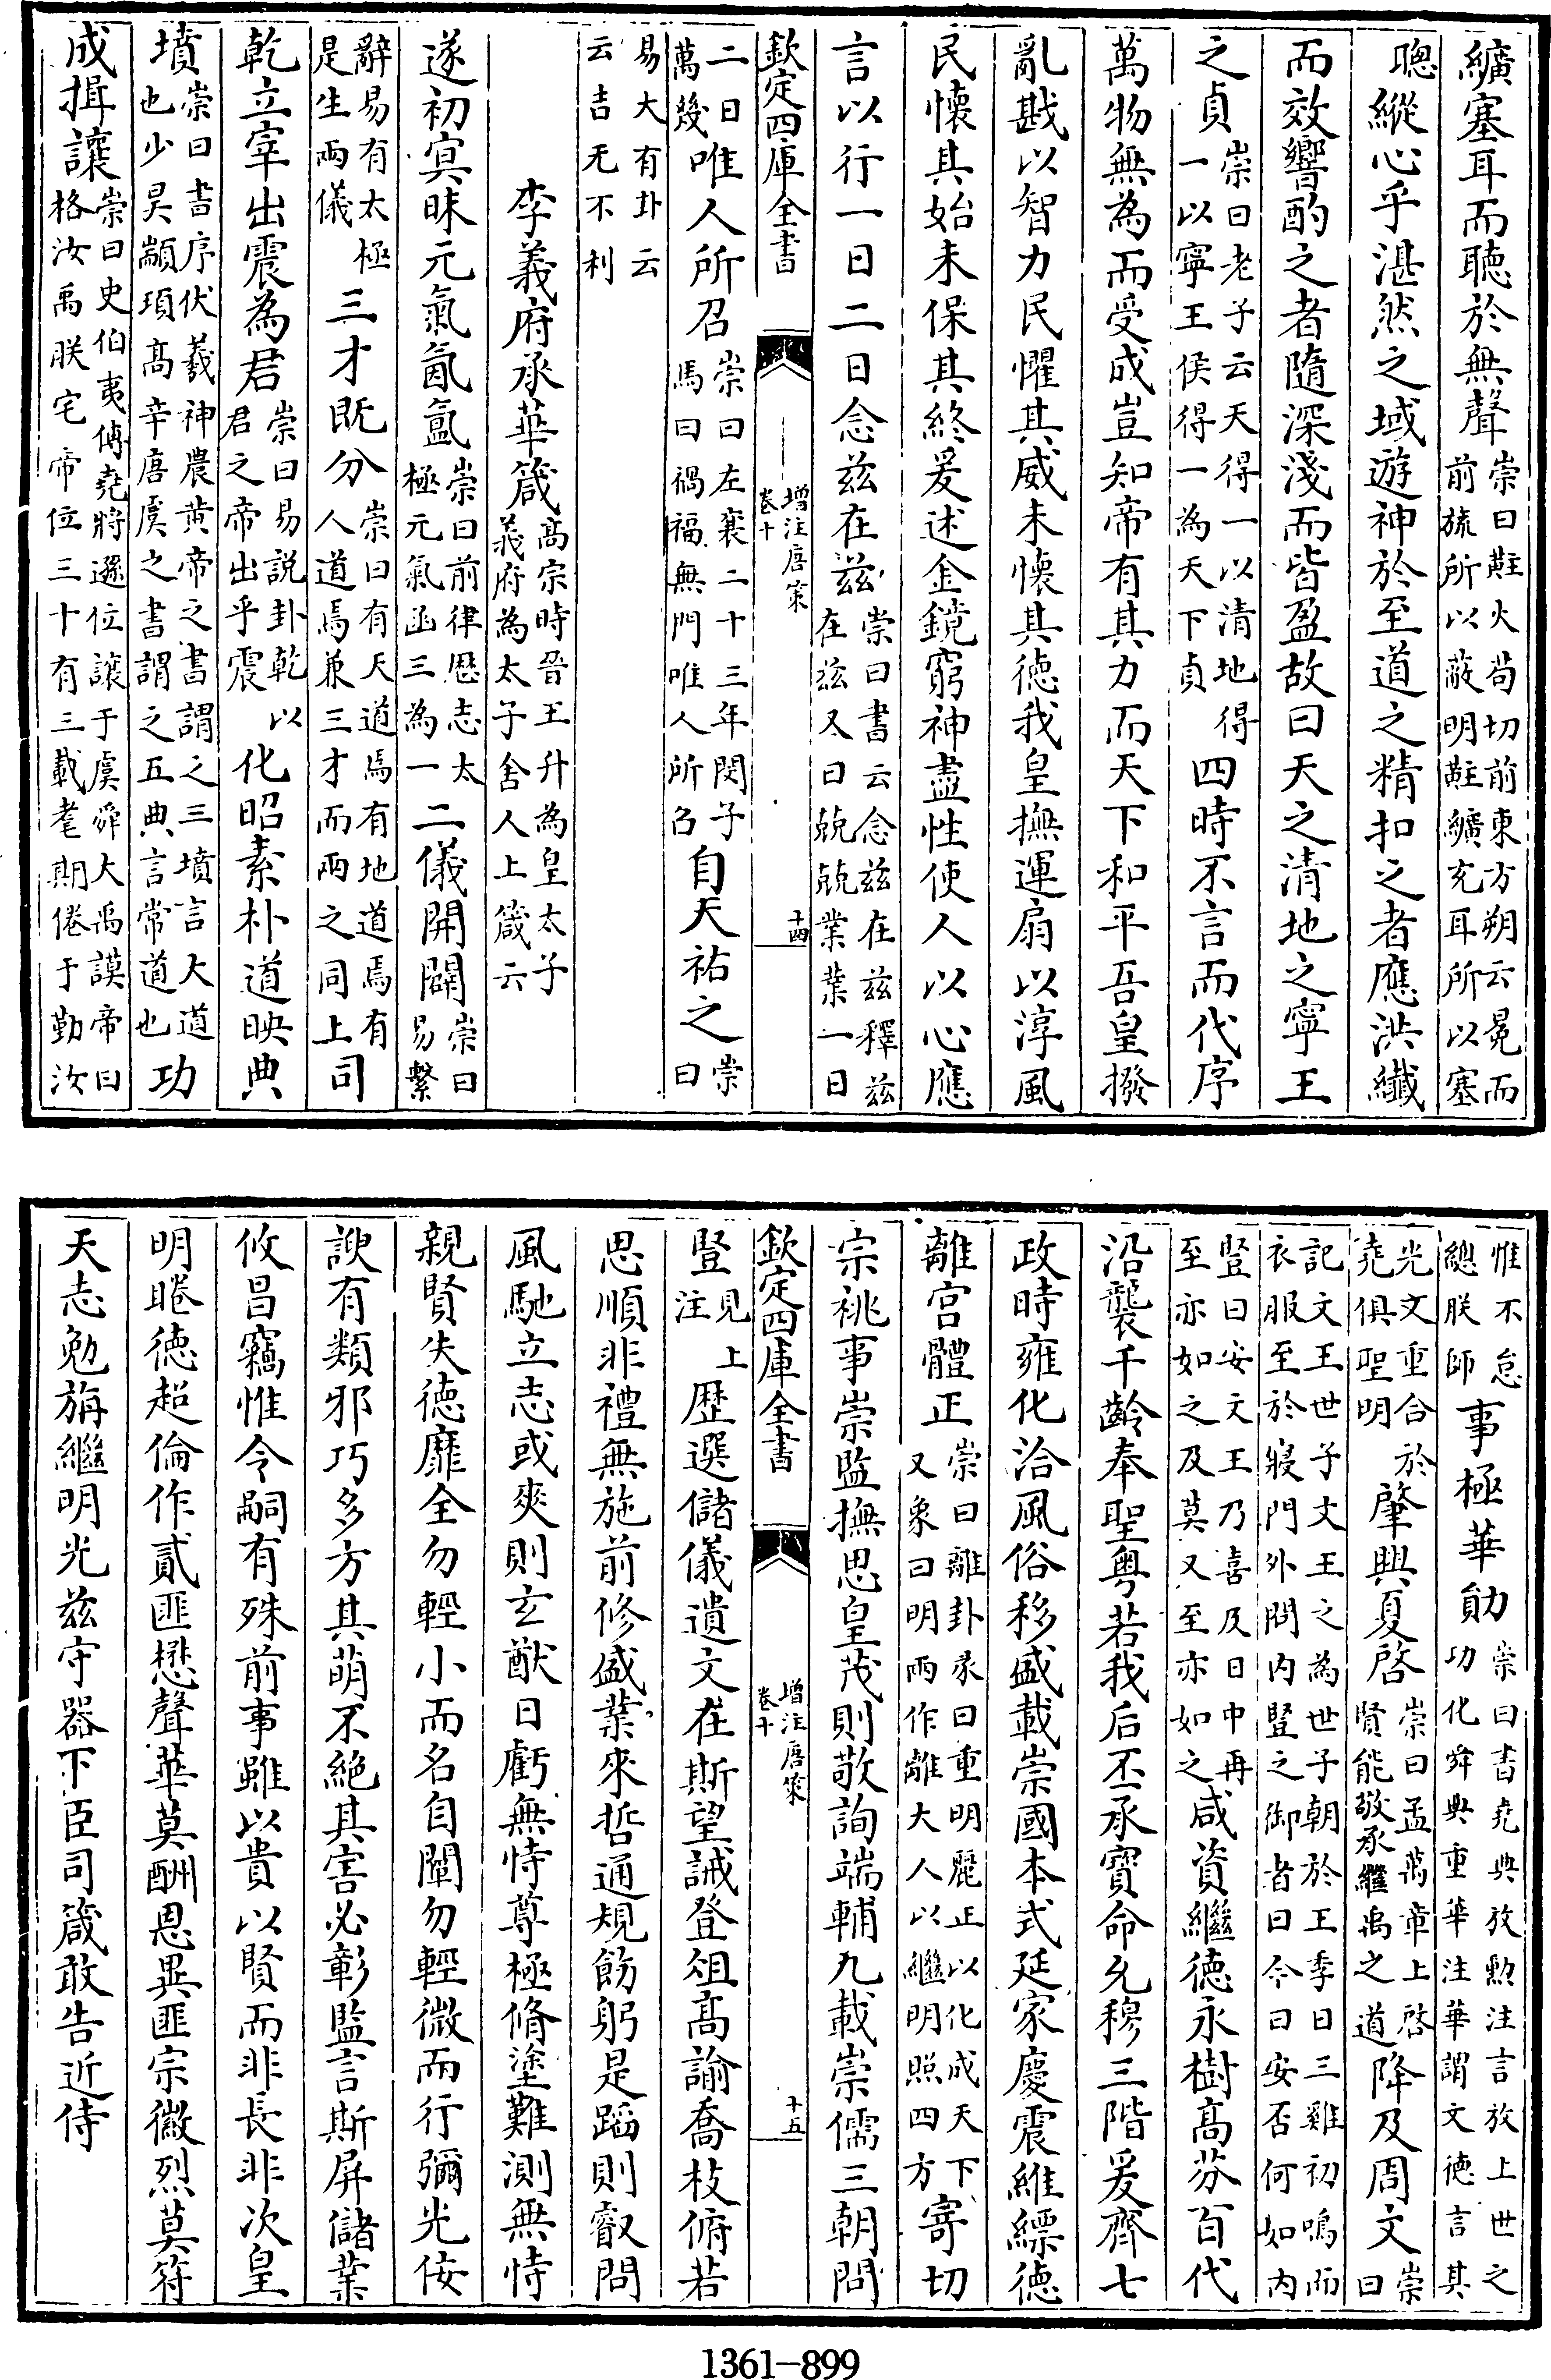 纊塞耳而聽於無聲崇曰黈火茍切前東方朔云冕而前旒所以蔽明黈纊充耳所以塞
聰縱心乎湛然之域遊神於至道之精扣之者應洪纖
而效響酌之者隨深淺而皆盈故曰天之清地之寧王
之貞崇曰老子云天得一以清地得一以寧王侯得一為天下貞四時不言而代序
萬物無為而受成豈知帝有其力而天下和平吾皇撥
亂戡以智力民懼其威未懷其徳我皇撫運扇以淳風
民懷其始未保其終爰述金鏡窮神盡性使人以心應
言以行一日二日念兹在兹崇曰書云念兹在兹釋兹在兹又曰兢兢業業一日
欽定四庫全書 增注唐策 卷十 十四
二日萬幾唯人所召崇曰左襄二十三年閔子馬曰禍福無門唯人所召自天祐之崇曰
易大有卦云云吉无不利
李義府承華箴高宗時晉王升為皇太子義府為太子舍人上箴云
遂初冥昧元氣氤氲崇曰前律厯志太極元氣函三為一二儀開闢崇曰易繫
辭易有太極是生兩儀三才既分崇曰有天道焉有地道焉有人道焉兼三才而兩之同上司
乾立宰出震為君崇曰易説卦乾以君之帝出乎震化昭素朴道映典
墳崇曰書序伏羲神農黄帝之書謂之三墳言大道也少昊顓頊高辛唐虞之書謂之五典言常道也功
成揖讓崇曰史伯夷傳堯將遜位讓于虞舜大禹謨帝曰格汝禹朕宅帝位三十有三載耄期倦于勤汝
惟不怠總朕師事極華勛崇曰書堯典放勲注言放上世之功化舜典重華注華謂文徳言其
光文重合於堯俱聖明肇興夏啓崇曰孟萬章上啓賢能敬承繼禹之道降及周文崇曰
記文王世子文王之為世子朝於王季日三雞初鳴而衣服至於寢門外問内豎之御者曰今日安否何如内
豎曰安文王乃喜及日中再至亦如之及莫又至亦如之咸資繼徳永樹高芬百代
沿襲千齡奉聖粤若我后丕承寶命允穆三階爰齊七
政時雍化洽風俗移盛載崇國本式延家慶震維縹徳
離宫體正崇曰離卦彖曰重明麗正以化成天下又象曰明兩作離大人以繼明照四方寄切
宗祧事崇監撫思皇茂則敬詢端輔九載崇儒三朝問
欽定四庫全書 增注唐策 卷十 十五
豎見上注歴選儲儀遺文在斯望誡登俎高諭喬枝俯若
思順非禮無施前修盛業來哲通規飭躬是蹈則叡問
風馳立志或爽則玄猷日虧無恃尊極脩塗難測無恃
親賢失徳靡全勿輕小而名自闡勿輕微而行彌光佞
諛有類邪巧多方其萌不絶其害必彰監言斯屏儲業
攸昌竊惟令嗣有殊前事雖以貴以賢而非長非次皇
明睠徳超倫作貳匪懋聲華莫酬恩異匪宗徽烈莫符
天志勉旃繼明光兹守器下臣司箴敢告近侍
1361-899